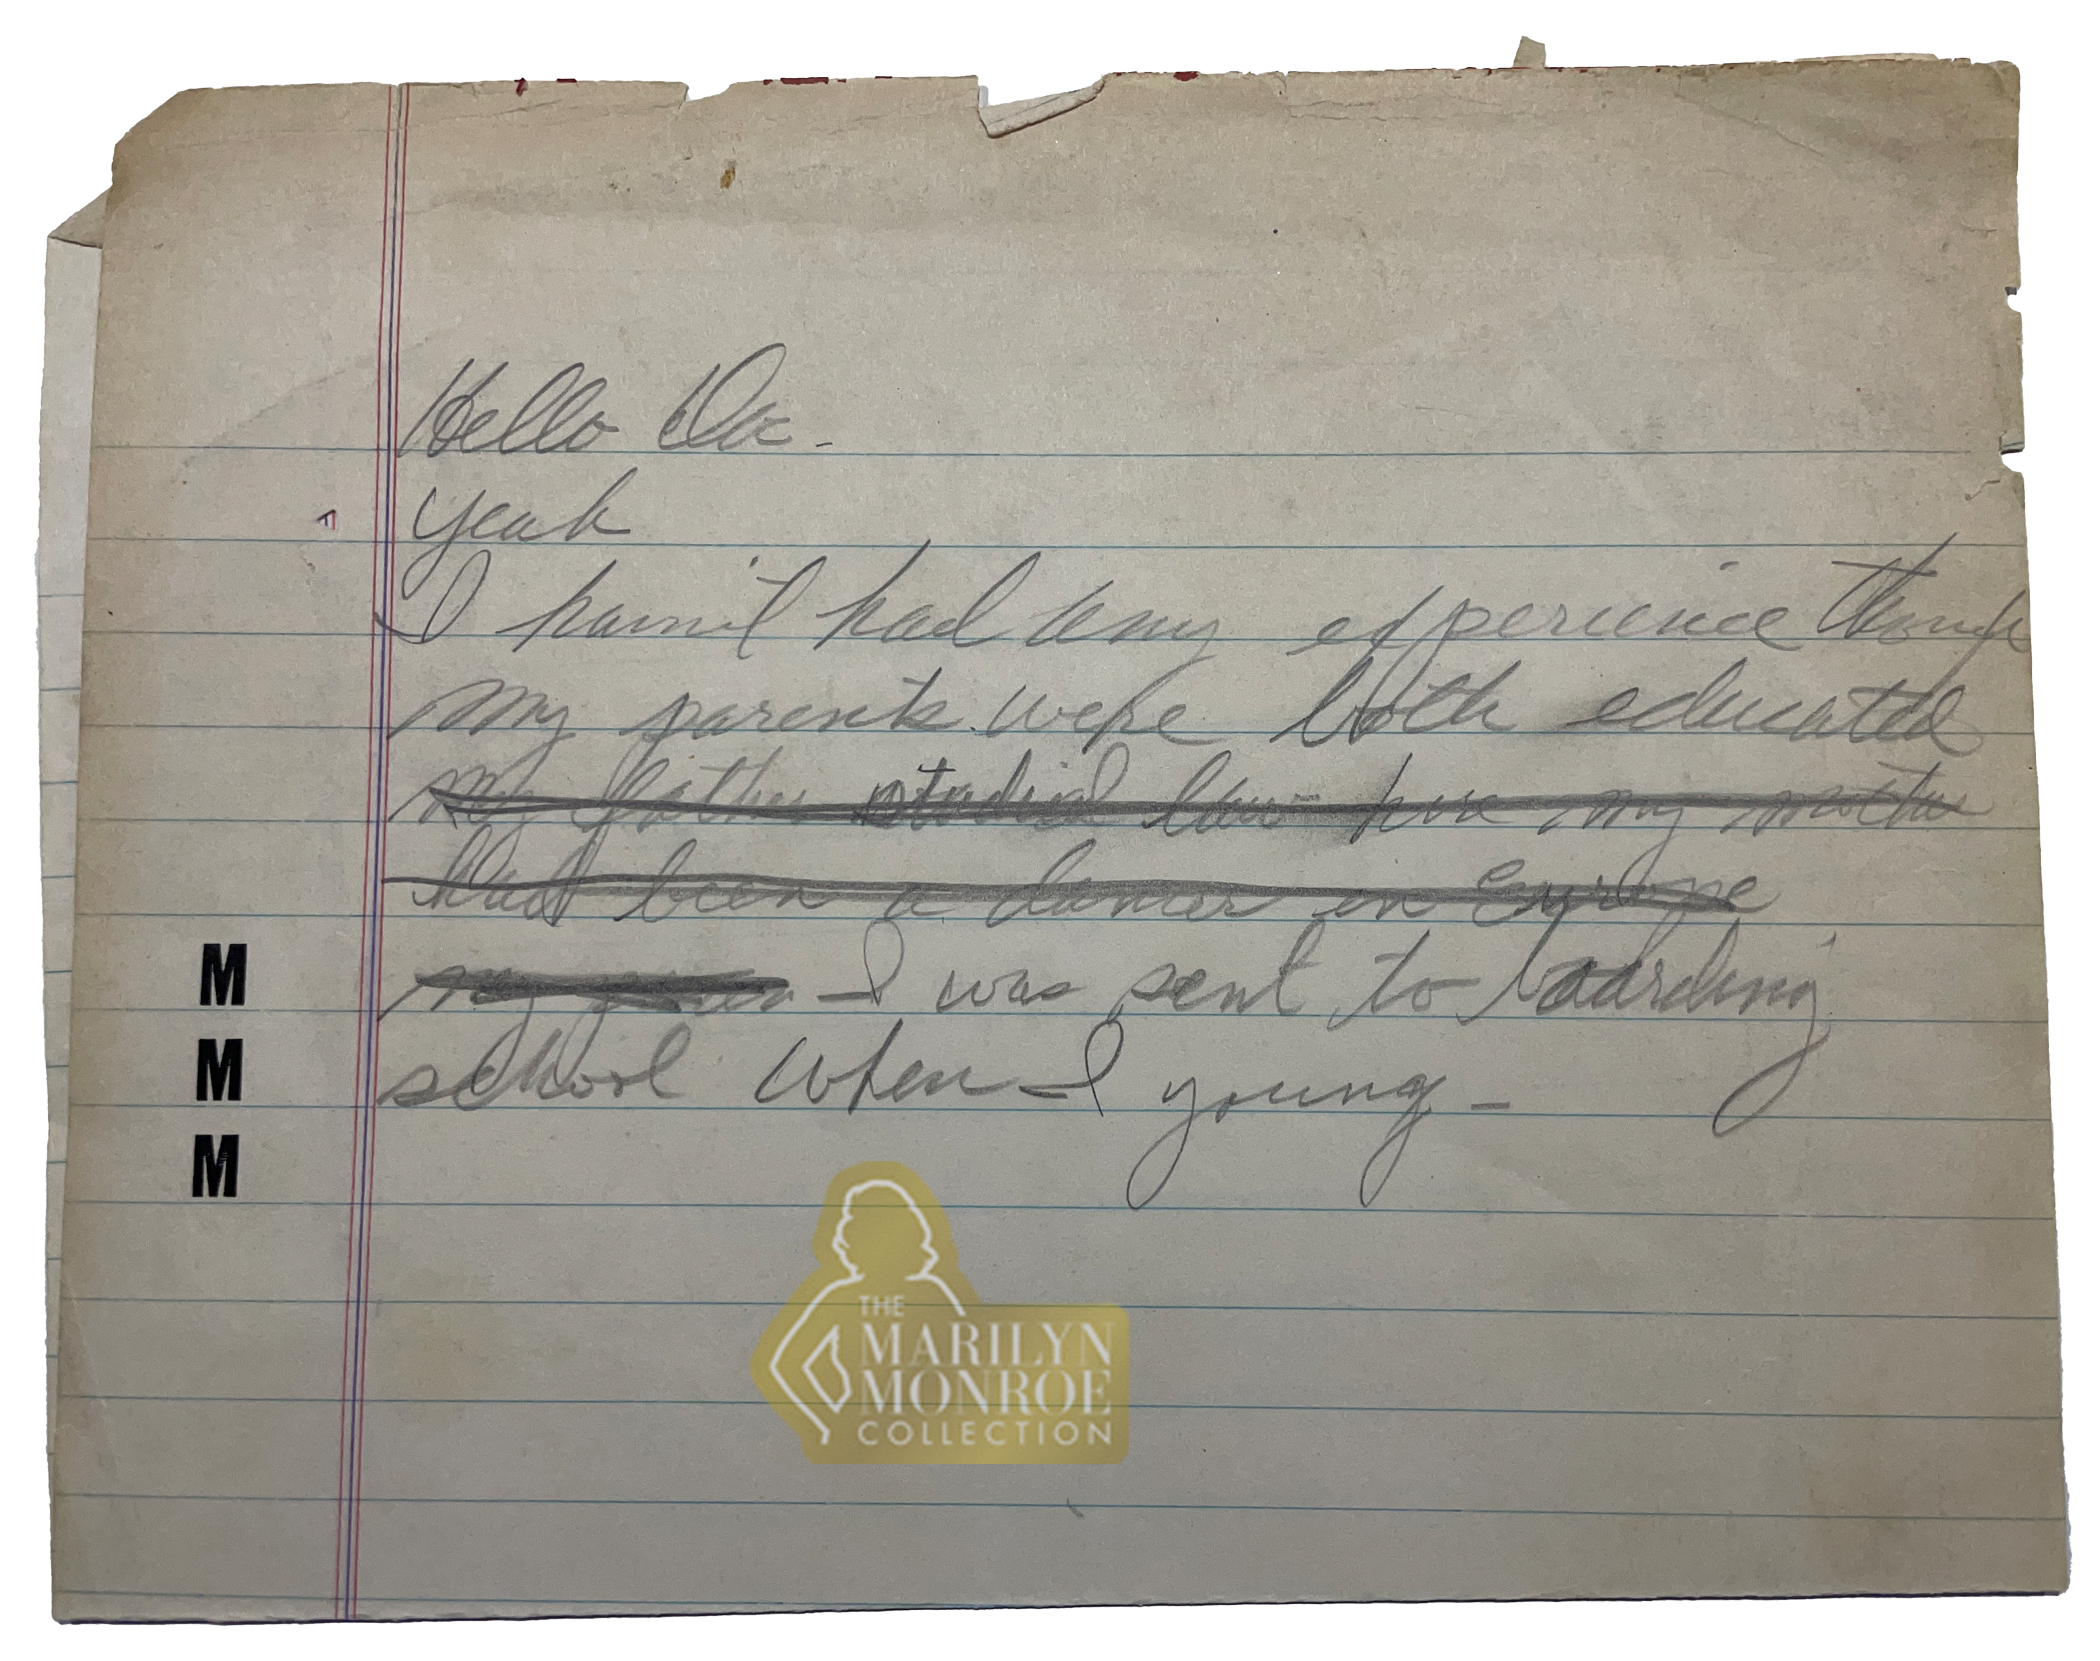 Hello Doc -
yeah
I havn't had any experience though
my parents were both educated
my father studied law here my mother
had been a dancer in Europe
my I was sent to boarding
school when I young -
M
M
M
THE
MARILYN
MONROE
COLLECTION